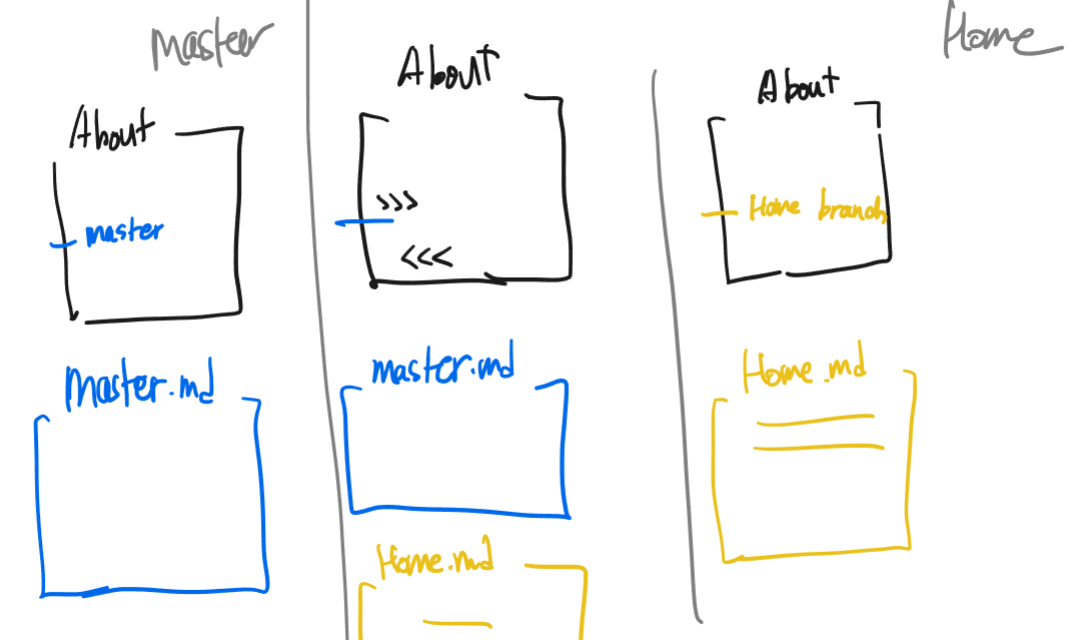 master
About
master
Master.md
About
>>>
<<<
master.md
Home.md
Home
About
Home branch
Home.md